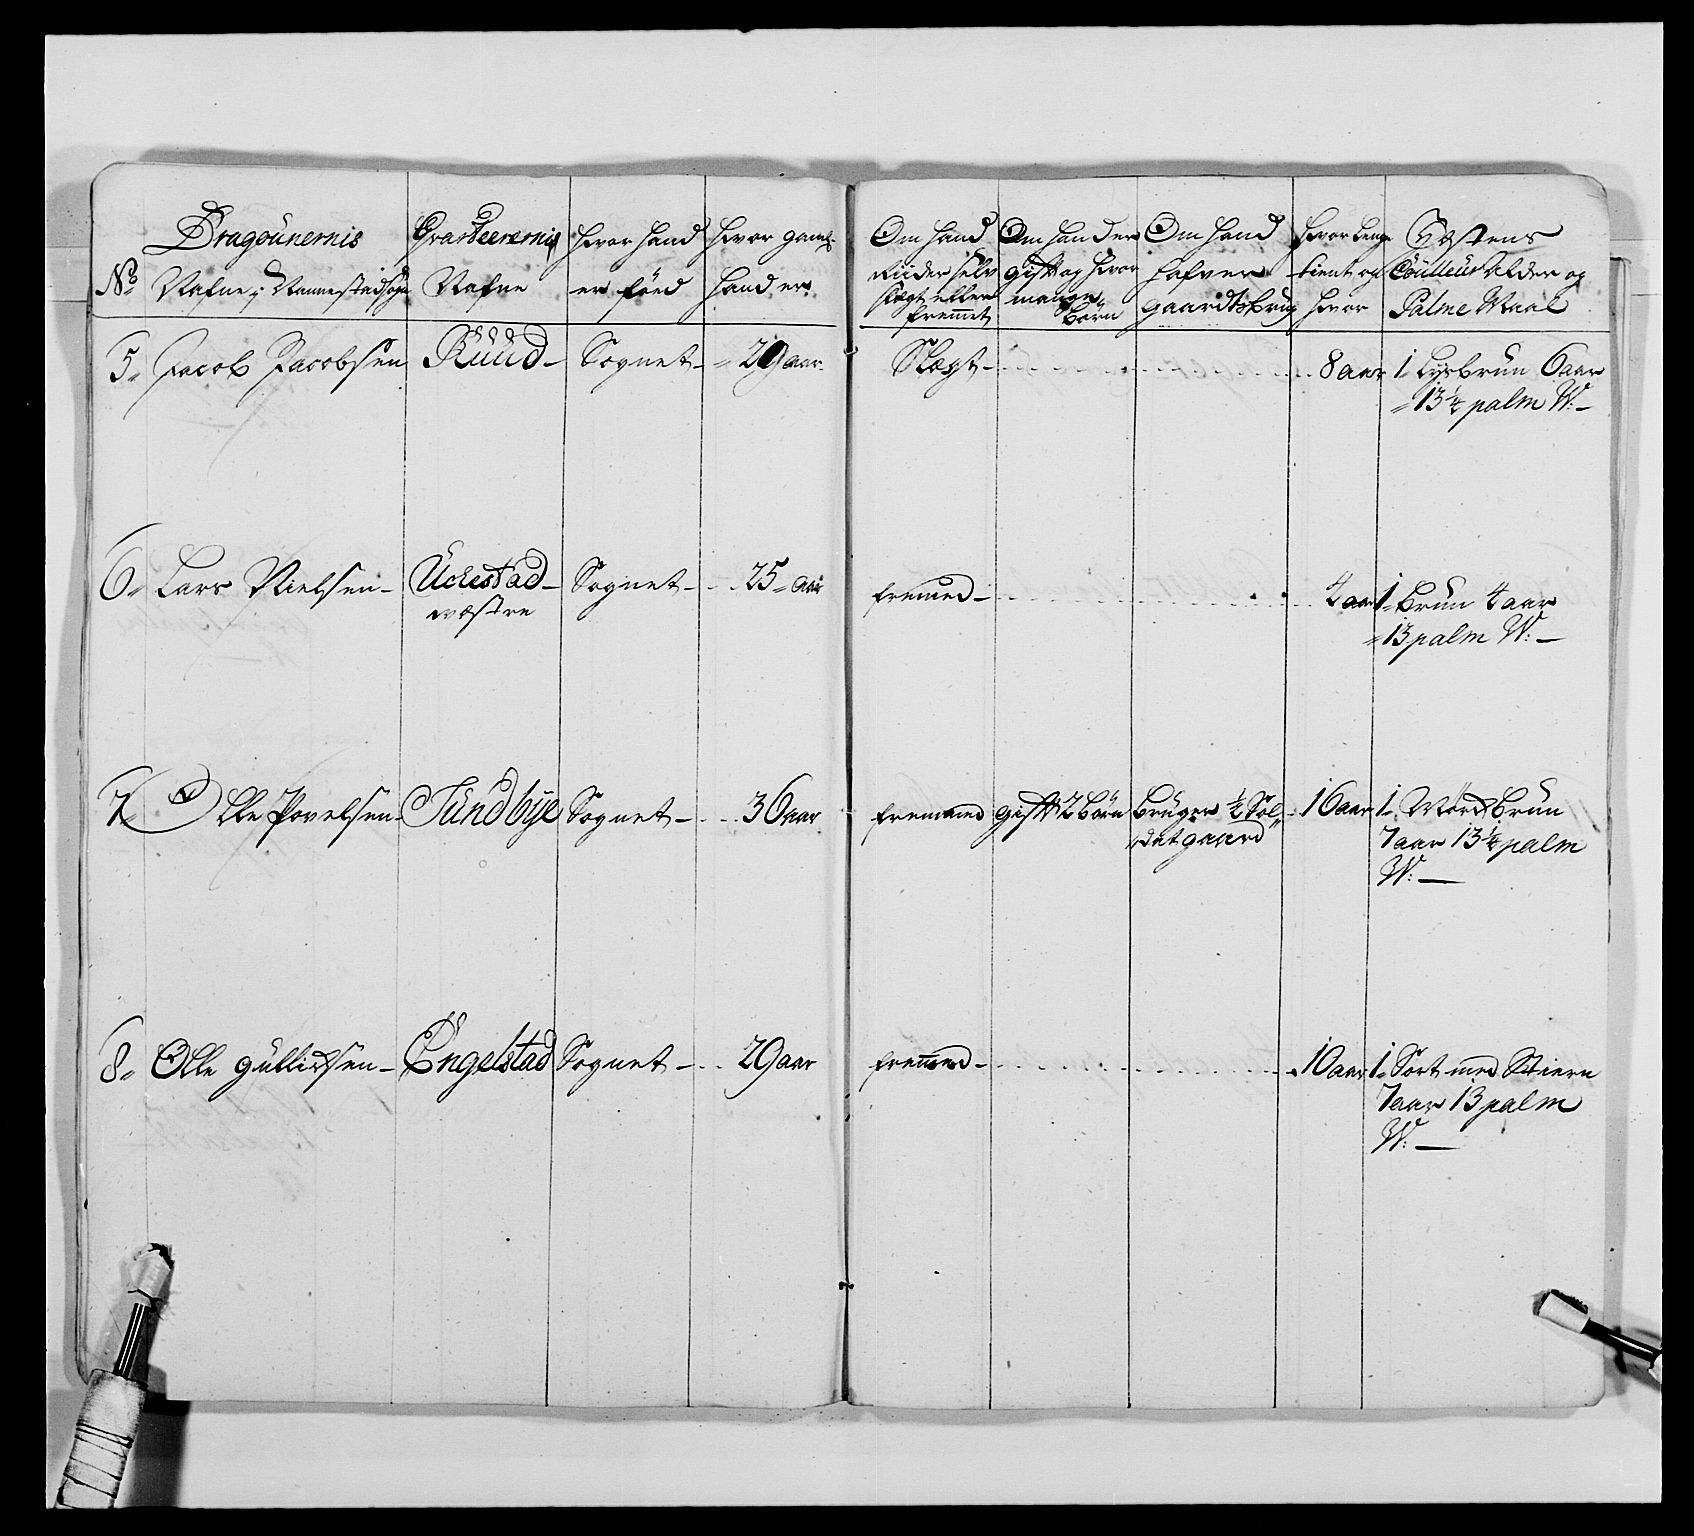 Dragounernis
No Nafne i Nannestad sogn
Qvarteerernis
Nafne
Hvor hand
er föed
Hvor gamel
hand er
Om hand
Riider selv
slægt eller
fremmet
Om hand er
gift og hvor
mange
Börn
Om hand
hafver
gaardtsbrug
Hvor lenge
tient og
hvor
Hæstens
CouLleur Alder og
Palme Maal
5. Jacob Jacobsen Ruud – Sognet – 29 aar Slægt – 8 aar 1 Lysbrun 6 aar
13 1/4 palm W: –
6. Lars Nielsen – Uckestad – Sognet – 25 aar fremed – 4 aar 1 brun 4 aar
væstre
13 palm W: –
7. Olle Povelsen – Sundbye Sognet – 36 aar fremmed gift 2 börn bruger 1/2 Sol
datgaard
16 aar 1 Mörckbrun
7 aar 13 1/4 palm
W: –
8. Olle gullichsen – Engelstad Sognet – 29 aar fremmed – 10 aar 1 Sort med Stiern
7 aar 13 palm
W: –